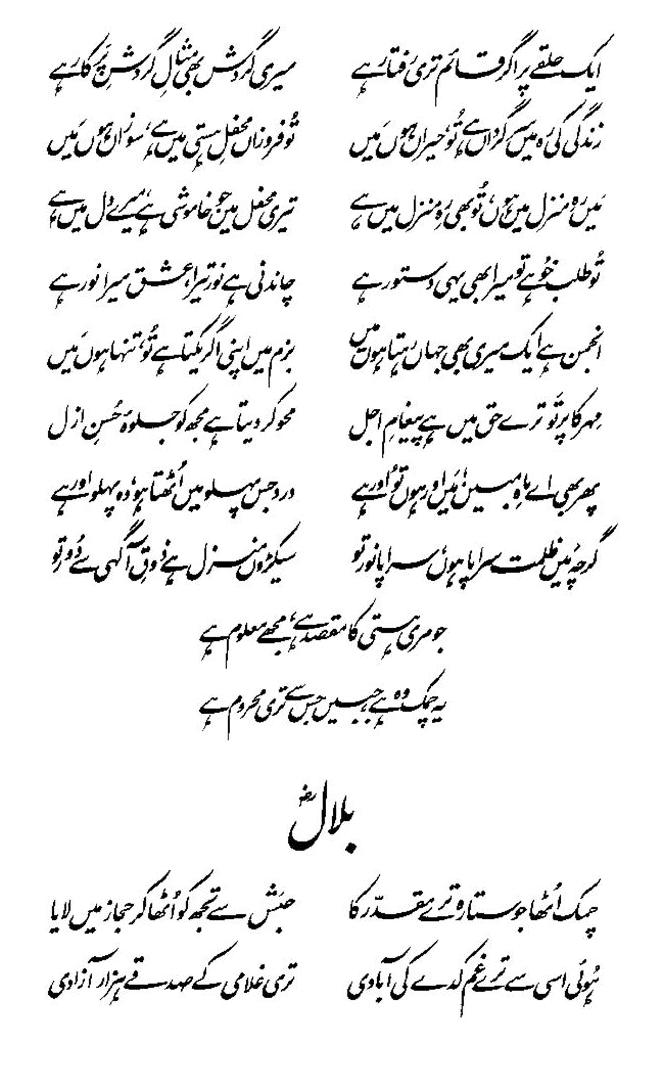 ایک حلقے پر اگر قائم تری رفتار ہے میری گردش بھی مثالِ گردشِ پَرکار ہے
زندگی کی رہ میں سرگرداں ہے تُو، حیراں ہوں مَیں تُو فروزاں محفلِ ہستی میں ہے، سوزاں ہوں مَیں
مَیں رہِ منزل میں ہوں، تُو بھی رہِ منزل میں ہے تیری محفل میں جو خاموشی ہے، میرے دل میں ہے
تُو طلب خُو ہے تو میرا بھی یہی دستور ہے چاندنی ہے نور تیرا، عشق میرا نور ہے
انجمن ہے ایک میری بھی جہاں رہتا ہوں مَیں بزم میں اپنی اگر یکتا ہے تُو، تنہا ہوں مَیں
مِہر کا پرتَو ترے حق میں ہے پیغامِ اجل محو کر دیتا ہے مجھ کو جلوۂ حُسنِ ازل
پھر بھی اے ماہِ مبیں! مَیں اور ہوں تُو اور ہے درد جس پہلو میں اُٹھتا ہو، وہ پہلو اور ہے
گرچہ مَیں ظلمت سراپا ہوں، سراپا نور تو سیکڑوں منزل ہے ذوقِ آگہی سے دُور تو
جو مری ہستی کا مقصد ہے، مجھے معلوم ہے
یہ چمک وہ ہے، جبیں جس سے تری محروم ہے
بلالؓ
چمک اُٹھا جو ستارہ ترے مقدّر کا حبَش سے تجھ کو اُٹھا کر حجاز میں لایا
ہُوئی اسی سے ترے غم کدے کی آبادی تری غلامی کے صدقے ہزار آزادی